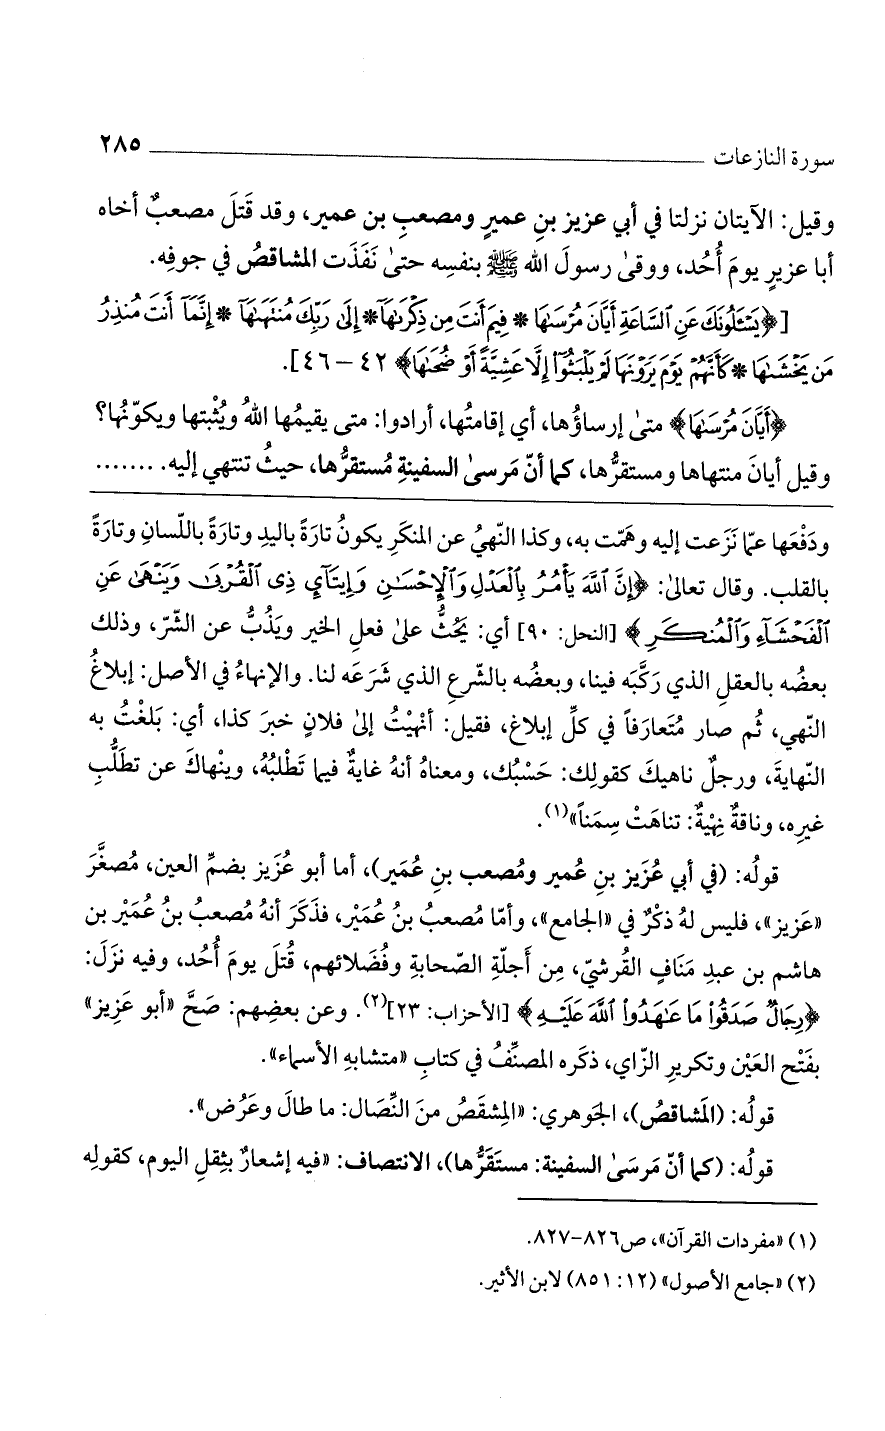 سورة النازعات ٢٨٥
وقيل: الآيتان نزلتا في أبي عزيز بنِ عميرٍ ومصعبِ بن عمير، وقد قَتلَ مصعبٌ أخاه
أبا عزيرٍ يومَ أُحُد، ووقىٰ رسولَ الله ﷺ بنفسِه حتىٰ نَفَذَت المشاقصُ في جوفِه.
[﴿يَسْـَٔلُونَكَ عَنِ ٱلسَّاعَةِ أَيَّانَ مُرْسَىٰهَا * فِيمَ أَنتَ مِن ذِكْرَىٰهَآ * إِلَىٰ رَبِّكَ مُنتَهَىٰهَآ * إِنَّمَآ أَنتَ مُنذِرُ
مَن يَخْشَىٰهَا * كَأَنَّهُمْ يَوْمَ يَرَوْنَهَا لَمْ يَلْبَثُوٓا۟ إِلَّا عَشِيَّةً أَوْ ضُحَىٰهَا﴾ ٤٢ – ٤٦].
﴿أَيَّانَ مُرْسَىٰهَا﴾ متىٰ إرساؤُها، أي إقامتُها، أرادوا: متى يقيمُها اللهُ ويُثْبتها ويكوّنُها؟
وقيل أيانَ منتهاها ومستقرُّها، كما أنّ مَرسىٰ السفينةِ مُستقرُّها، حيثُ تنتهي إليه. .......
ودَفْعَها عمّا نَزَعت إليه وهَمّت به، وكذا النّهيُ عن المنكَرِ يكونُ تارَةً باليدِ وتارَةً باللّسانِ وتارةً
بالقلب. وقال تعالىٰ: ﴿إِنَّ ٱللَّهَ يَأْمُرُ بِٱلْعَدْلِ وَٱلْإِحْسَـٰنِ وَإِيتَآيِٕ ذِى ٱلْقُرْبَىٰ وَيَنْهَىٰ عَنِ
ٱلْفَحْشَآءِ وَٱلْمُنكَرِ﴾ [النحل: ٩٠] أي: يَحُثُّ علىٰ فعلِ الخير ويَذُبُّ عن الشّرّ، وذلك
بعضُه بالعقلِ الذي رَكَّبَه فينا، وبعضُه بالشّرعِ الذي شَرَعَه لنا. والإنهاءُ في الأصل: إبلاغُ
النّهي، ثُم صار مُتَعارَفاً في كلِّ إبلاغ، فقيل: أنْهيْتُ إلىٰ فلانٍ خبرَ كذا، أي: بَلغْتُ به
النّهايةَ، ورجلٌ ناهيكَ كقولِك: حَسْبُك، ومعناهُ أنهُ غايةٌ فيما تَطْلبُهُ، وينْهاكَ عن تطلُّبِ
غيرِه، وناقةٌ نِهْيةٌ: تناهَتْ سِمَناً»(١).
قولُه: (في أبي عُزَيز بنِ عُمير ومُصعب بنِ عُمَير)، أما أبو عُزَيز بضمِّ العين، مُصغَّرَ
«عَزيز»، فليس لهُ ذكْرٌ في «الجامع»، وأمّا مُصعبُ بنُ عُمَيْر، فذَكَرَ أنهُ مُصعبُ بنُ عُمَيْر بن
هاشم بن عبدِ مَنَافٍ القُرشيّ، مِن أَجلّةِ الصّحابةِ وفُضَلائهم، قُتلَ يومَ أُحُد، وفيه نزَلَ:
﴿رِجَالٌ صَدَقُوا۟ مَا عَـٰهَدُوا۟ ٱللَّهَ عَلَيْهِ﴾ [الأحزاب: ٢٣](٢). وعن بعضِهم: صَحَّ «أبو عَزِيز»
بفَتْح العَيْن وتكريرِ الزّاي، ذكَره المصنِّفُ في كتابِ «متشابهِ الأسماء».
قولُه: (المَشاقصُ)، الجَوهري: «المِشقَصُ منَ النِّصَال: ما طالَ وعَرُض».
قولُه: (كما أنّ مَرسَىٰ السفينة: مستَقَرُّها)، الانتصاف: «فيه إشعارٌ بثِقلِ اليوم، كقولِه
(١) «مفردات القرآن»، ص٨٢٦–٨٢٧.
(٢) «جامع الأصول» (١٢: ٨٥١) لابن الأثير.